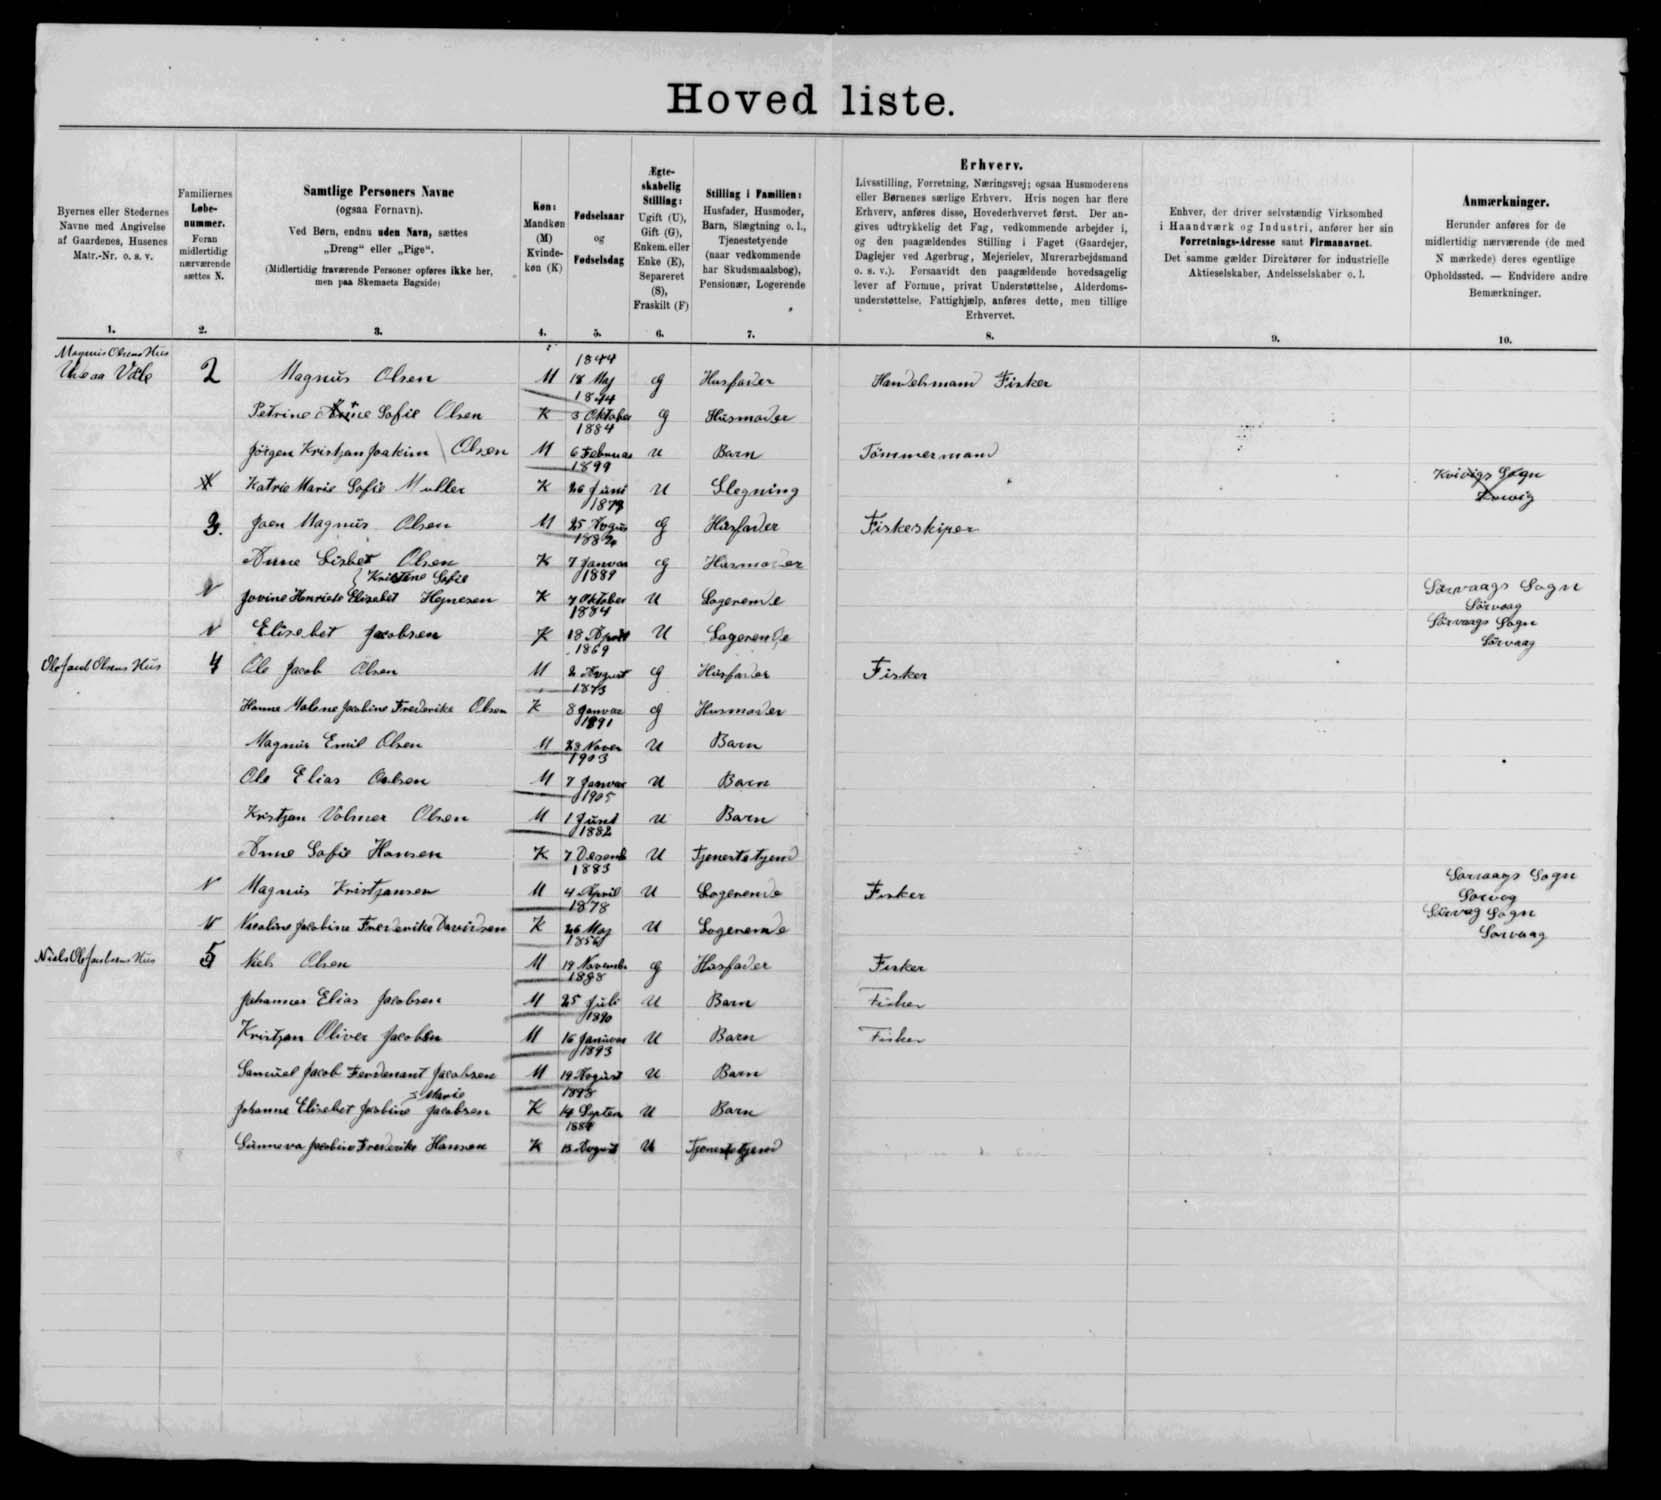 Hoved liste.
Byernes eller Stedernes
Navne med Angivelse
af Gaardenes, Husenes
Matr.-Nr. o. s. v.
1.
Familiernes
Løbe-
nummer.
Foran
midlertidig
nærværende
sættes N.
2.
Samtlige Personers Navne
(ogsaa Fornavn).
Ved Børn, endnu uden Navn, sættes
„Dreng“ eller „Pige“.
(Midlertidig fraværende Personer opføres ikke her,
men paa Skemaets Bagside)
3.
Køn:
Mandkøn
(M)
Kvinde-
køn (K)
4.
Fødselsaar
og
Fødselsdag
5.
Ægte-
skabelig
Stilling:
Ugift (U),
Gift (G),
Enkem. eller
Enke (E),
Separeret
(S),
Fraskilt (F)
6.
Stilling i Familien:
Husfader, Husmoder,
Barn, Slægtning o. l.,
Tjenestetyende
(naar vedkommende
har Skudsmaalsbog),
Pensionær, Logerende
7.
Erhverv.
Livsstilling, Forretning, Næringsvej; ogsaa Husmoderens
eller Børnenes særlige Erhverv. Hvis nogen har flere
Erhverv, anføres disse, Hovederhvervet først. Der an-
gives udtrykkelig det Fag, vedkommende arbejder i,
og den paagældendes Stilling i Faget (Gaardejer,
Daglejer ved Agerbrug, Mejerielev, Murerarbejdsmand
o. s. v.). Forsaavidt den paagældende hovedsagelig
lever af Formue, privat Understøttelse, Alderdoms-
understøttelse, Fattighjælp, anføres dette, men tillige
Erhvervet.
8.
Enhver, der driver selvstændig Virksomhed
i Haandværk og Industri, anfører her sin
Forretnings-Adresse samt Firmanavnet.
Det samme gælder Direktører for industrielle
Aktieselskaber, Andelsselskaber o. l.
9.
Anmærkninger.
Herunder anføres for de
midlertidig nærværende (de med
N mærkede) deres egentlige
Opholdssted. — Endvidere andre
Bemærkninger.
10.
Magnus Olsens Hus
2 Magnus Olsen M 1844 18 Maj G Husfader Handelsmand Fisker
Petrine Sofie Olsen K 1844 3 Oktober G Husmoder
Jörgen Kristjan Joakim Olsen M 1884 6 Februar U Barn Tömmermand
Katrie Marie Sofie Muller K 1899 26 Juni U Slegning Kvivigs Sogn
3. Joen Magnus Olsen M 25 G Husfader Fiskeskiper
Anne Lisbet Olsen K 7 Januar G Husmoder
Kristine Sofie
N Jovine Henriete Elisabet Hejnesen K 1889 7 Oktober U Logerende Sørvaags Sogn
Sörvaag
N Elisebet Jacobsen K 1884 18 April U Logerende Sörvaags Sogn
Sörvaag
Ole Jacob Olsens Hus 4 Ole Jacob Olsen M 1869 2 August G Husfader Fisker
Hanne Malene Jacobine Frederike Olsen K 1873 8 Januar G Husmoder
Magnus Emil Olsen M 1891 Novem U Barn
Ole Elias Olsen M 1903 7 Januar U Barn
Kristjan Volmer Olsen M 1905 1 Juni U Barn
Anne Sofie Hansen K 1882 7 Desemb U Tjenestetjend
N Magnus Kristjansen M 1883 4 April U Logerende Fisker Sorvaags Sogn
N Nicoline Jacobine Frederike Davidsen K 1878 26 Maj U Logerende Sörvag Sogn
Sorvaag
Niels Ole Jacobsens Hus 5 Niels Olsen M 19 November G Husfader Fisker
Johannes Elias Jacobsen M 1888 25 Juli U Barn Fisker
Kristjan Oliver Jacobsen M 1890 16 Januar U Barn Fisker
Samuel Jacob Ferdenant Jacobsen M 1893 19 August U Barn
Marie
Johanne Elisebet Jacobine Jacobsen K 14 Septem U Barn
Sunneva Jacobine Frederike Hansen K August U Tjenestetjend